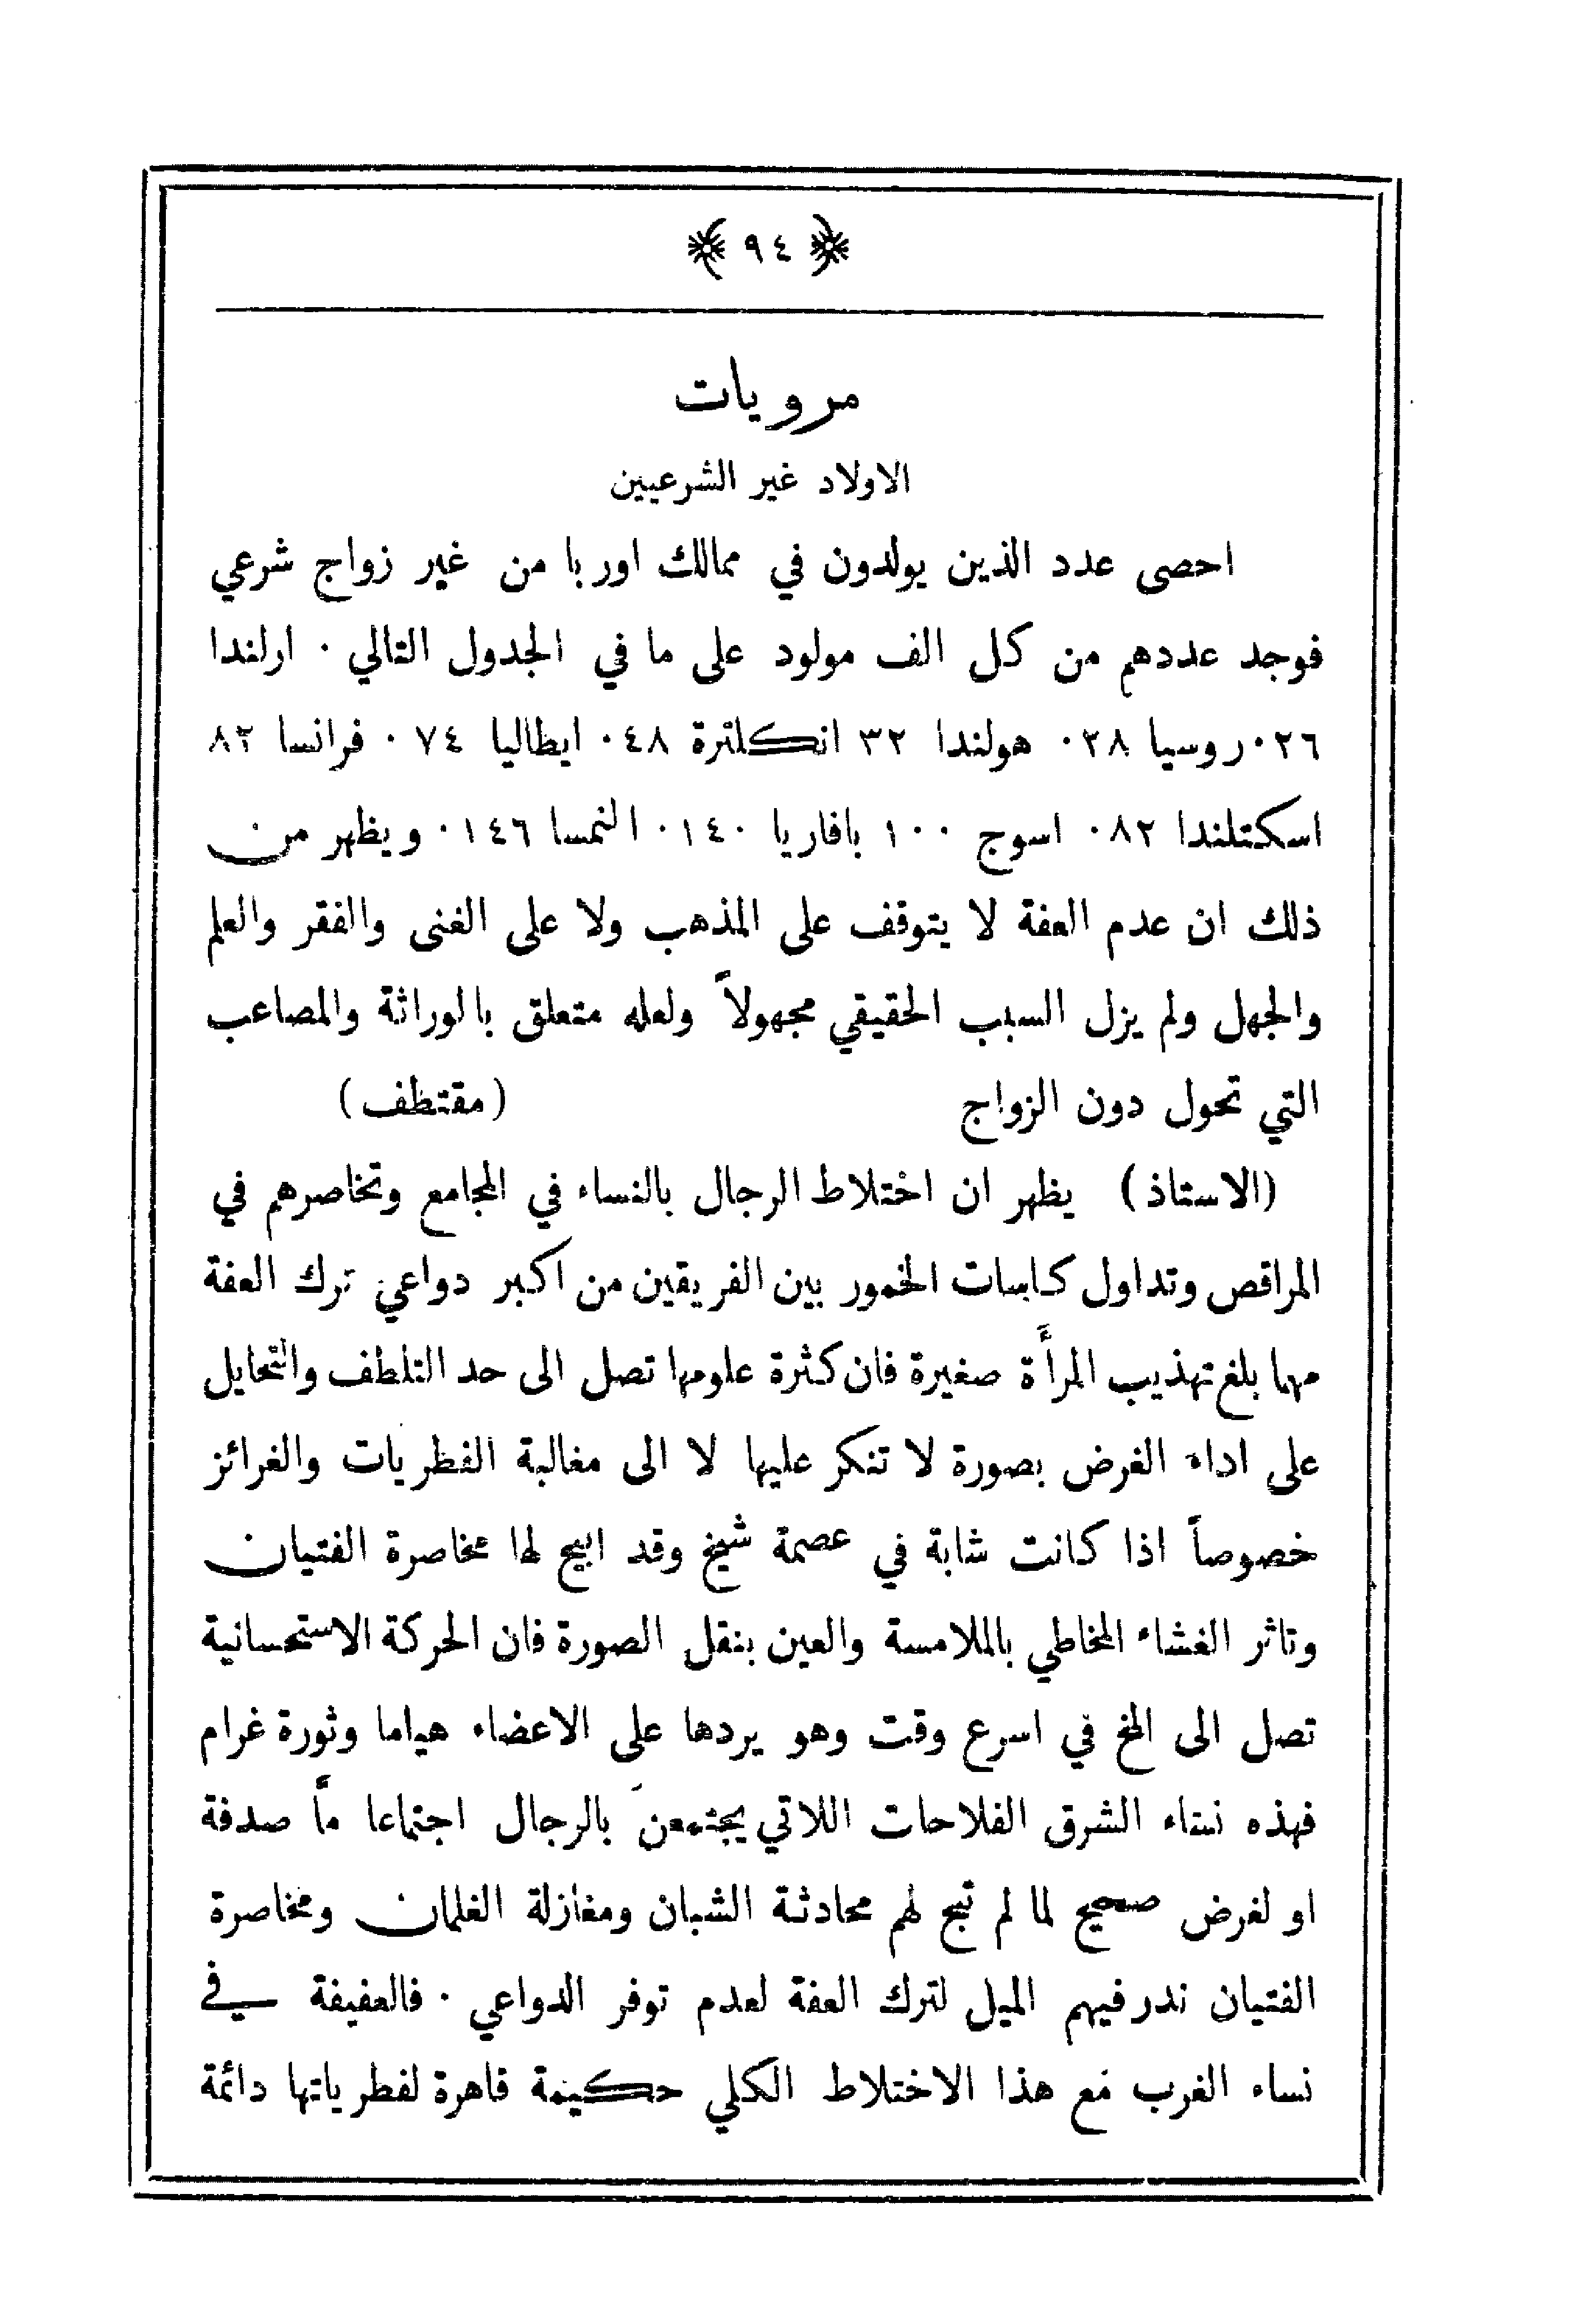 ﴿ ٩٤ ﴾
مرويات
الاولاد غير الشرعيين
احصى عدد الذين يولدون في ممالك اوربا من غير زواج شرعي
فوجد عددهم من كل الف مولود على ما في الجدول التالي ٠ ارلندا
٢٦ ٠ روسيا ٢٨ ٠ هولندا ٣٢ انكلترة ٤٨ ٠ ايطاليا ٧٤ ٠ فرانسا ٨٢
اسكتلندا ٨٢ ٠ اسوج ١٠٠ بافاريا ١٤٠ ٠ النمسا ١٤٦ ٠ ويظهر من
ذلك ان عدم العفة لا يتوقف على المذهب ولا على الغنى والفقر والعلم
والجهل ولم يزل السبب الحقيقي مجهولاً ولعله متعلق بالوراثة والمصاعب
التي تحول دون الزواج (مقتطف)
(الاستاذ) يظهر ان اختلاط الرجال بالنساء في المجامع وتخاصرهم في
المراقص وتداول كاسات الخمور بين الفريقين من اكبر دواعي ترك العفة
مهما بلغ تهذيب المرأَة صغيرة فان كثرة علومها تصل الى حد التلطف والتحايل
على اداء الغرض بصورة لا تنكر عليها لا الى مغالبة الفطريات والغرائز
خصوصاً اذا كانت شابة في عصمة شيخ وقد ابيح لها مخاصرة الفتيان
وتاثر الغشاء المخاطي بالملامسة والعين بنقل الصورة فان الحركة الاستحسانية
تصل الى المخ في اسرع وقت وهو يردها على الاعضاء هياما وثورة غرام
فهذه نساء الشرق الفلاحات اللاتي يجتمعنَ بالرجال اجتماعا مّا صدفة
او لغرض صحيح لما لم تبح لهم محادثة الشبان ومغازلة الغلمان ومخاصرة
الفتيان ندر فيهم الميل لترك العفة لعدم توفر الدواعي ٠ فالعفيفة في
نساء الغرب مع هذا الاختلاط الكلي حكيمة قاهرة لفطرياتها دائمة